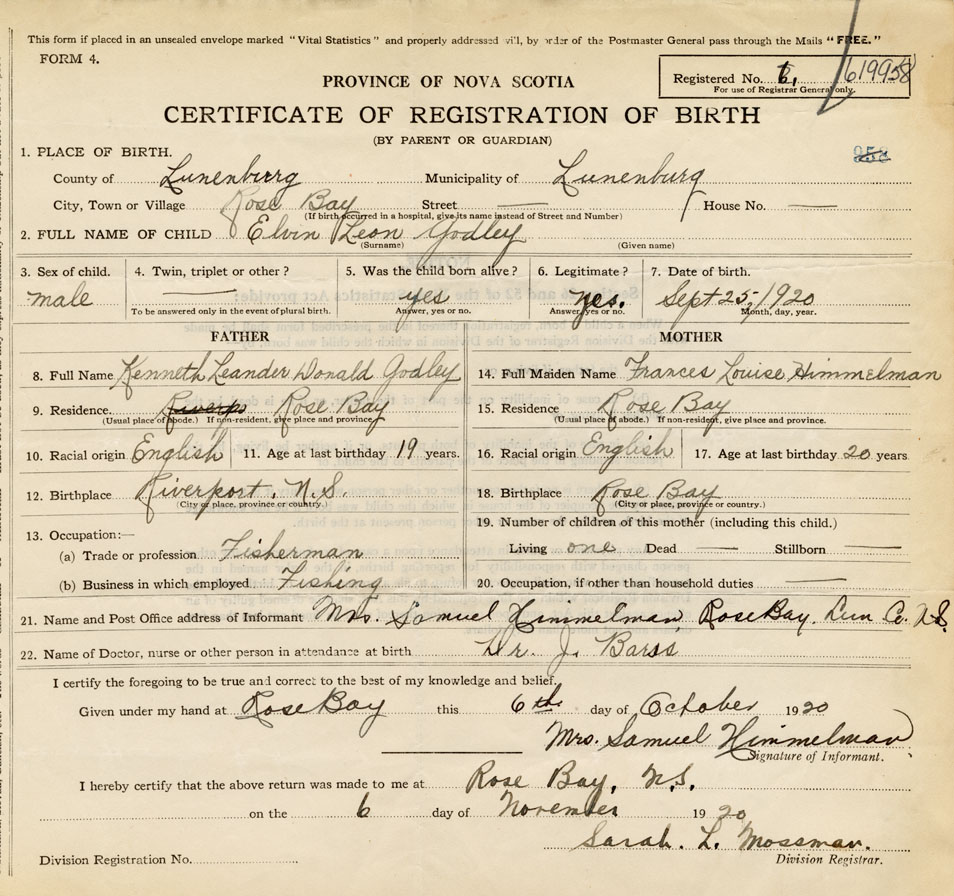 This form if placed in an unsealed envelope marked "Vital Statistics" and properly addressed will, by order of the Postmaster General pass through the Mails "FREE."
FORM 4.
Registered No. 619958
For use of Registrar General only.
PROVINCE OF NOVA SCOTIA
CERTIFICATE OF REGISTRATION OF BIRTH
(BY PARENT OR GUARDIAN)
1. PLACE OF BIRTH.
County of Lunenburg Municipality of Lunenburg
City, Town or Village Rose Bay Street — House No. —
(If birth occurred in a hospital, give its name instead of Street and Number)
2. FULL NAME OF CHILD Elvin Leon Godley
(Surname) (Given name)
3. Sex of child. 4. Twin, triplet or other? 5. Was the child born alive? 6. Legitimate? 7. Date of birth.
male — yes yes. Sept 25, 1920
To be answered only in the event of plural birth. Answer, yes or no. Answer, yes or no. Month, day, year.
FATHER MOTHER
8. Full Name Kenneth Leander Donald Godley 14. Full Maiden Name Frances Louise Himmelman
9. Residence. Rose Bay 15. Residence Rose Bay
(Usual place of abode.) If non-resident, give place and province. (Usual place of abode.) If non-resident, give place and province.
10. Racial origin English 11. Age at last birthday 19 years. 16. Racial origin English 17. Age at last birthday 20 years
12. Birthplace Riverport, N.S. 18. Birthplace Rose Bay
(City or place, province or country.) (City or place, province or country.)
19. Number of children of this mother (including this child.)
13. Occupation:—
(a) Trade or profession Fisherman Living one Dead — Stillborn —
(b) Business in which employed Fishing 20. Occupation, if other than household duties —
21. Name and Post Office address of Informant Mrs. Samuel Himmelman, Rose Bay. Lun Co. N.S.
22. Name of Doctor, nurse or other person in attendance at birth Dr. J. Barss
I certify the foregoing to be true and correct to the best of my knowledge and belief.
Given under my hand at Rose Bay this 6th day of October 1920
Mrs. Samuel Himmelman
Signature of Informant.
I hereby certify that the above return was made to me at Rose Bay, N.S.
on the 6 day of November 1920
Sarah. L. Mossman.
Division Registration No. Division Registrar.